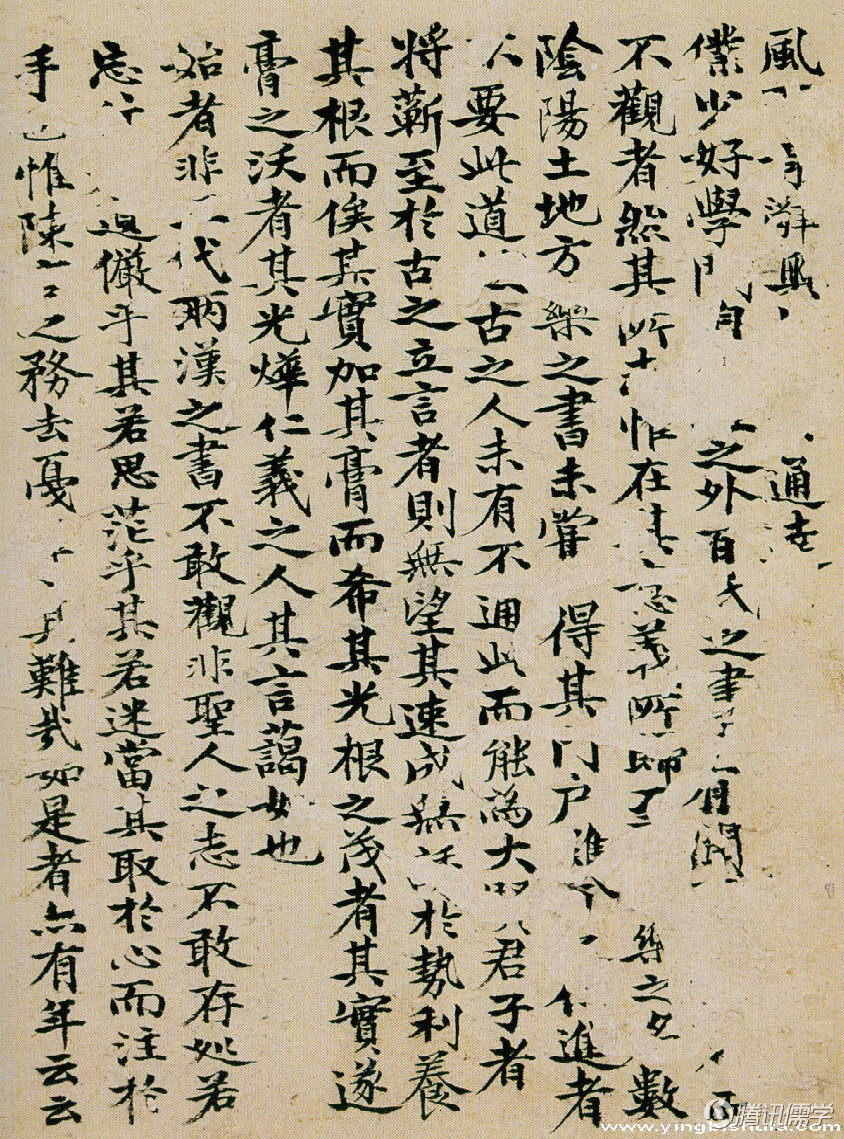 風 通
僕少好學問 之外百氏之書 有聞
不觀者然其所 在 義所歸 樂之名數
陰陽土地方藥之書未嘗 得其門戶雖今 仕進者
不要此道 古之人未有不通此而能為大賢君子者
將蘄至於古之立言者則無望其速成無誘於勢利養
其根而俟其實加其膏而希其光根之茂者其實遂
膏之沃者其光燁仁義之人其言藹如也
始者非三代兩漢之書不敢觀非聖人之志不敢存處若
忘行 遺儼乎其若思茫乎其若迷當其取於心而注於
手也惟陳言之務去戛 其難哉如是者亦有年云云
腾讯儒学
www.yingbishufa.com